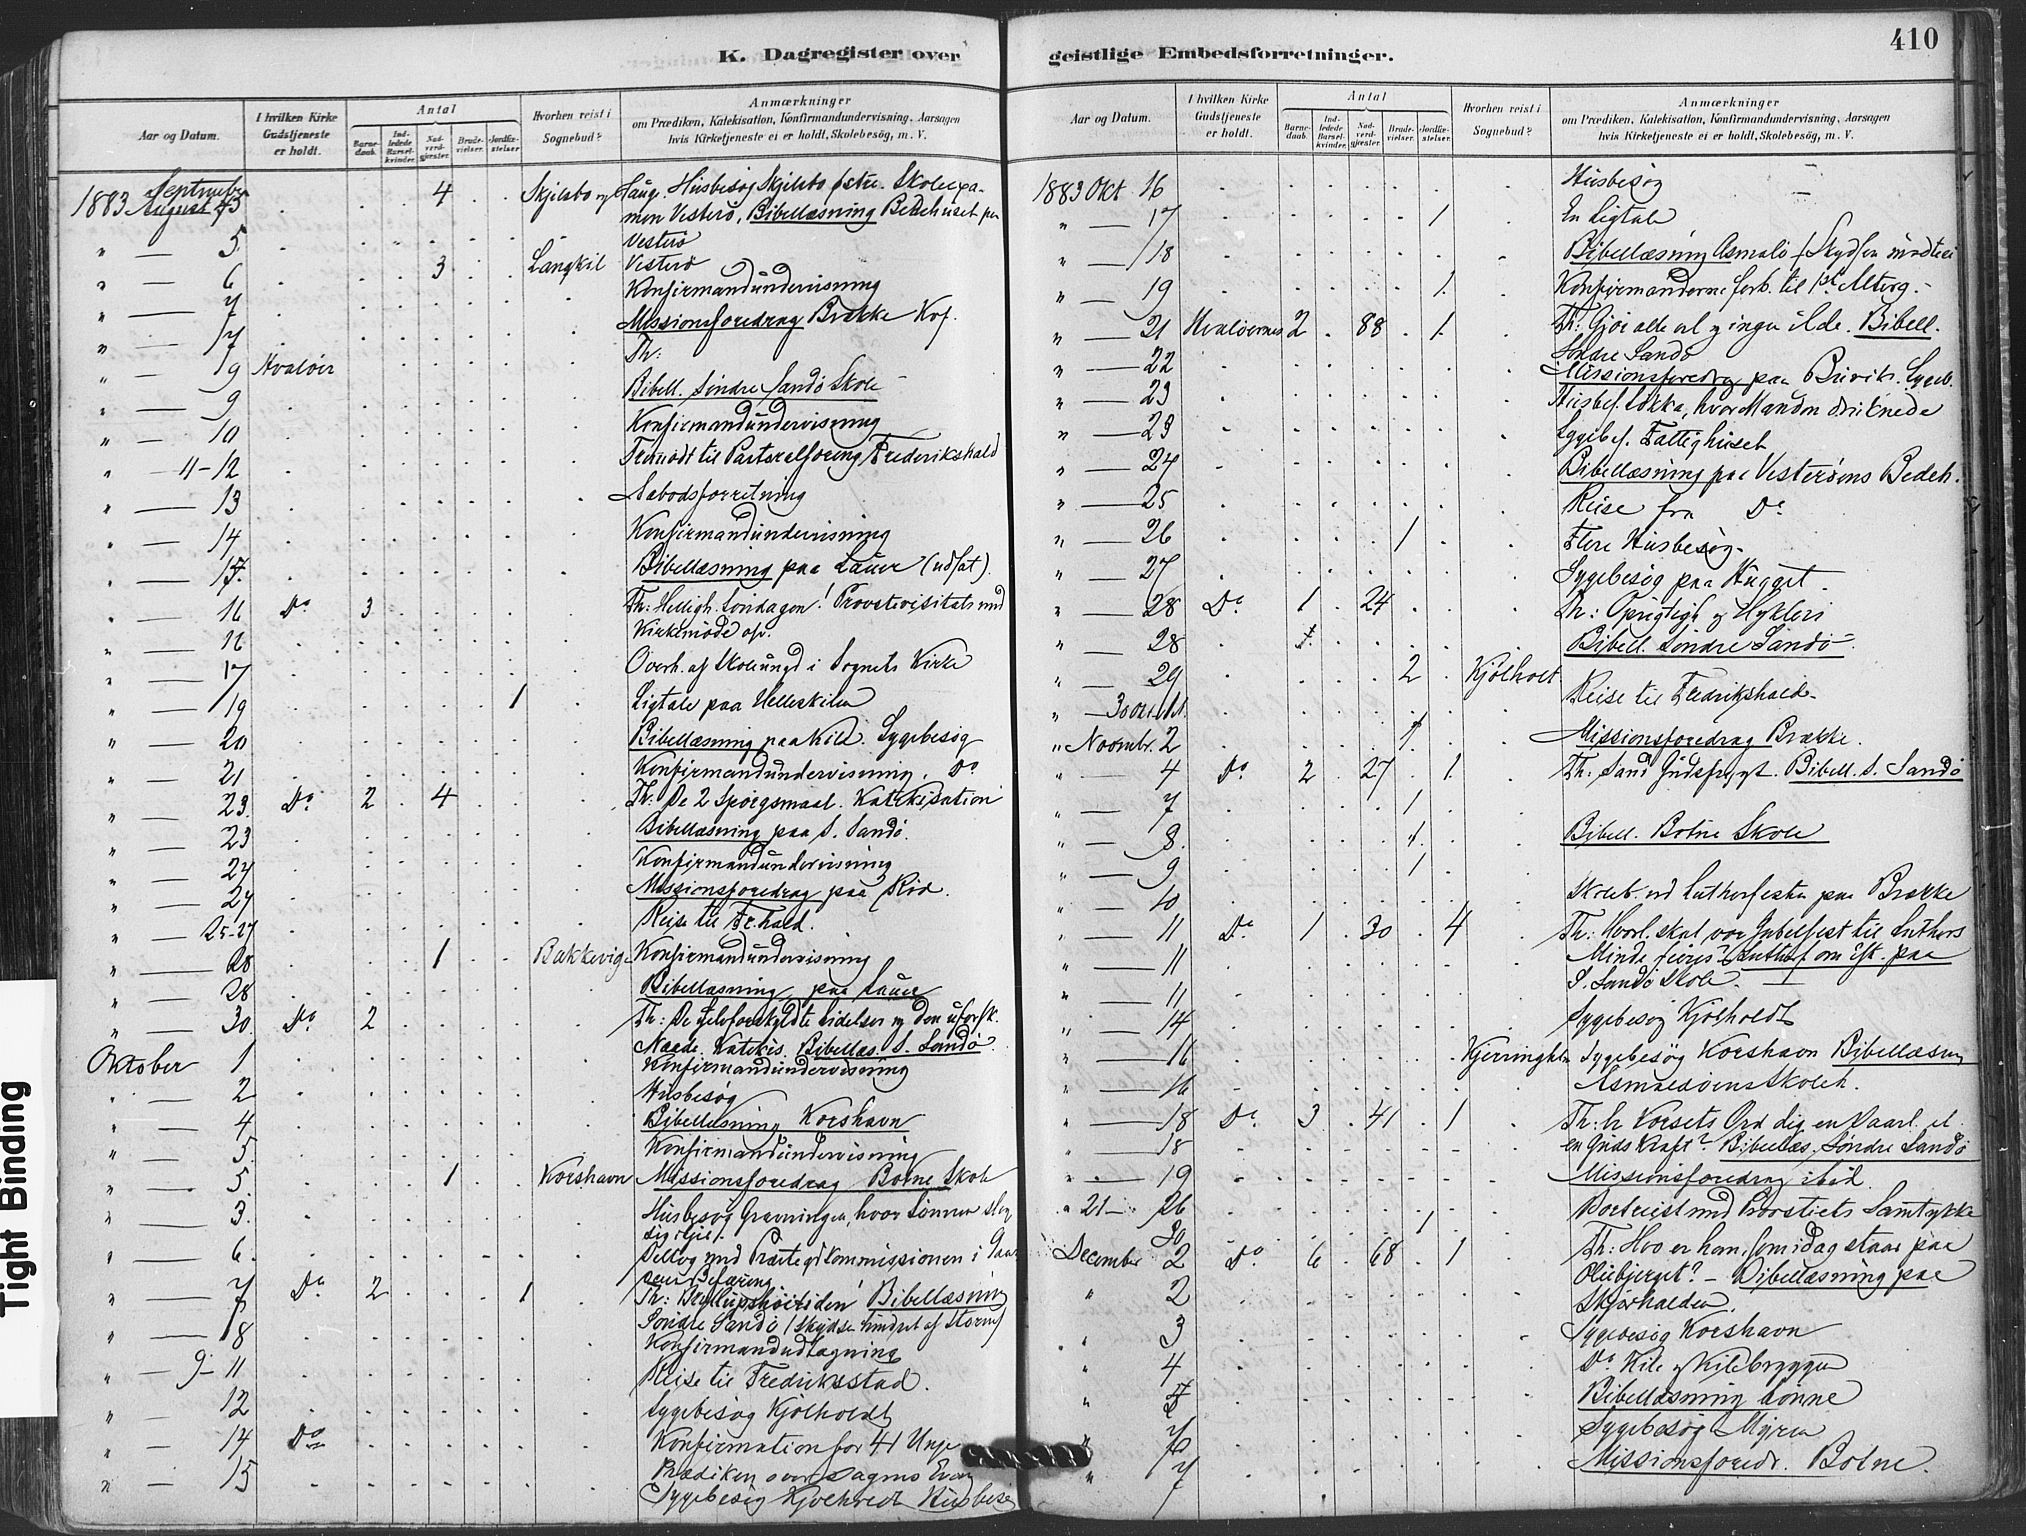 K. Dagregister over
Aar og Datum.
I hvilken Kirke Gudstjeneste er holdt.
Antal
Barne-daab. Ind-ledede Barsel-kvinder. Nad-verd-gjæster. Brude-vielser. Jordfæ-stelser.
Hvorhen reist i Sognebud?
Anmærkninger
om Prædiken, Katekisation, Konfirmandundervisning, Aarsagen
hvis Kirketjeneste ei er holdt, Skolebesøg, m. V.
1883 September 4 Skjelsbo Husbesøg Skjelsbo
Vesterö, Bibellæsning Bedehuset paa
" — 5 Vesterö
" — 6 3 Langkil Vesterö
" — 7 Konfirmandundervisning
" — 7 Missionsforedrag Brække
" — 9 Hvalöer Th:
" — 9 Bibell. Söndre Sandö Skole
" — 10 Konfirmandundervisning
" — 11-12 Fremödt til Pastoralforening Frederikshald
" — 13 Nabodsforretning
" — 14 Konfirmandundervisning
" — 15 Bibellæsning paa Lauer (udsat).
" — 16 Do 3 Th: Helligh. Söndagen! Provstevisitats med
" — 16 Kirkemöde
" — 17 Overh. af Skoleungd i Sognets Kirke
" — 19 1 Ligtale paa Hellekilen
" — 20 Bibellæsning paa Kile. Sygebesög
" — 21 Konfirmandundervisning. Do
" — 23. Do 2 4 Th: De 2 Spörgsmaal. Katekisation
" — 23 Bibellæsning paa S. Sandö.
" — 24 Konfirmandundervisning
" — 24 Missionsforedrag paa Röd.
" — 25-27 Reise til Fr.hald.
" — 28 1 Bakkevig Konfirmandundervisning
" — 28 Bibellæsning paa Lauer
" — 30. Do 2 Th: De selvforskyldte Lidelser og den uforsk.
Naade. Katekis. Bibellæs. S. Sandö.
Oktober 1 Konfirmandundervisning
" — 2 Husbesög
" — 4 Bibellæsning Korshavn
" — 5. Konfirmandundervisning
" — 5 1 Korshavn Missionsforedrag Botne Skole
" — 3. Husbesög Gravningen, hvor Sönnen
" — 6. Deltog med Præstegdkommissionen i
Befaring
" — 7 Do 2 1 Th: Bryllupshöitiden! Bibellæsning
" — 8 Söndre Sandö (Skydse hindret af Storm)
Konfirmandudtagning
" — 9-11 Reise til Fredriksstad.
" — 12 Sygebesög Kjölholdt
" — 14 Do Konfirmation for 41 Unge
" — 15 Prædiken over Dagens Evan
Sygebesög Kjölholdt Husbesö
geistlige Embedsforretninger.
410
Aar og Datum.
I hvilken Kirke Gudstjeneste er holdt.
Antal
Barne-daab. Ind-ledede Barsel-kvinder. Nad-verd-gjæster. Brude-vielser. Jordfæ-stelser.
Hvorhen reist i Sognebud?
Anmærkninger
om Prædiken, Katekisation, Konfirmandundervisning, Aarsagen
hvis Kirketjeneste ei er holdt, Skolebesøg, m. V.
1883 Okt 16 Husbesög
" — 17 1 En Ligtale
" — 18 Bibellæsning Asmalö
" — 19 1 Konfirmanderne forb. til 1ste Alterg.
" — 21 Hvalöernes 2 88 1 Th: Gjöe alle vel og ingen ilde. Bibell.
" — 22 Söndre Sandö
" — 23 Missionsforedrag paa Brevik. Sygeb.
" — 23 Husbes. Lökka, hvor Manden druknede
" — 24 Sygebes. Fattighuset
" — 25 Bibellæsning paa Vesteröens Bedeh.
Reise fra Do
" — 26 1 Flere Husbesög
" — 27 Sygebesög paa Kugget
" — 28 Do 1 24 Th: Oprigtigh og Hykleri
" — 28 Bibell. Söndre Sandö
" — 29 2 Kjölholt
" — 30 Reise til Fredrikshald
" Novmbr. 2 1 Missionsforedrag Brække.
" — 4 Do 2 27 1 Th. Sand Gudsfrygt. Bibell. S. Sandö
" — 7 1
" — 8. 1 Bibell. Botne Skole
" — 9 1
" — 10 Skoleb. ved Lutherfesten paa Brække
" — 11 Do 1 30 4 Th: Hvorl. skal vor Jubelfest til Luthers
" — 11 Minde feires?
" — 11 S. Sandö Skole.
" — 14 Sygebesög Kjölholdt
" — 16 Kjerringholm Sygebesög Korshavn Bibellæsning
" — 16 Asmalöens Skoleh.
" — 18 Do 3 41 1 Th: Er Korsets Ord dig en Daarl. el
" — 18 en Guds Kraft? Bibellæs. Söndre Sandö
" — 19 Missionsforedrag ibid.
" 21 — 26 1 Bortreist med Provstiets Samtykke
30
December 2 Do 6 68 1 Th: Hvo er han, som idag staar paa
Oliebjerget? — Bibellæsning paa
" 2 Skjærhalden.
" 3 Sygebesög Korshavn
" 4 Do Kile og Kilebryggen
" 5 Bibellæsning Lönne
" 7 Sygebesög Myren
" 7 Missionsforedr. Botne.
Tight Binding